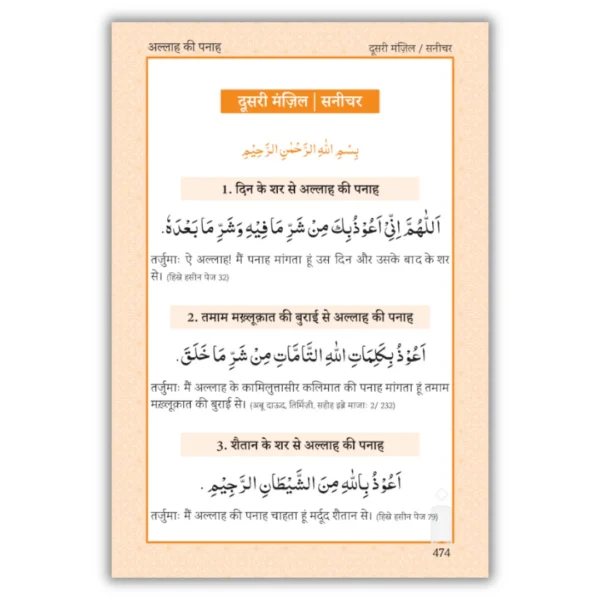 अल्लाह की पनाह
दूसरी मंज़िल / सनीचर
दूसरी मंज़िल | सनीचर
بِسْمِ اللهِ الرَّحْمٰنِ الرَّحِيْمِ
1. दिन के शर से अल्लाह की पनाह
اَللّٰهُمَّ اِنِّيْ اَعُوْذُ بِكَ مِنْ شَرِّ مَا فِيْهِ وَشَرِّ مَا بَعْدَهٗ.
तर्जुमाः ऐ अल्लाह! मैं पनाह मांगता हूं उस दिन और उसके बाद के शर
से। (हिस्ने हसीन पेज 32)
2. तमाम मख़्लूक़ात की बुराई से अल्लाह की पनाह
اَعُوْذُ بِكَلِمَاتِ اللهِ التَّامَّاتِ مِنْ شَرِّ مَا خَلَقَ.
तर्जुमाः मैं अल्लाह के कामिलुत्तासीर कलिमात की पनाह मांगता हूं तमाम
मख़्लूक़ात की बुराई से। (अबू दाऊद, तिर्मिज़ी, सहीह इब्ने माजाः 2/ 232)
3. शैतान के शर से अल्लाह की पनाह
اَعُوْذُ بِاللهِ مِنَ الشَّيْطَانِ الرَّجِيْمِ.
तर्जुमाः मैं अल्लाह की पनाह चाहता हूं मर्दूद शैतान से। (हिस्ने हसीन पेज 79)
474